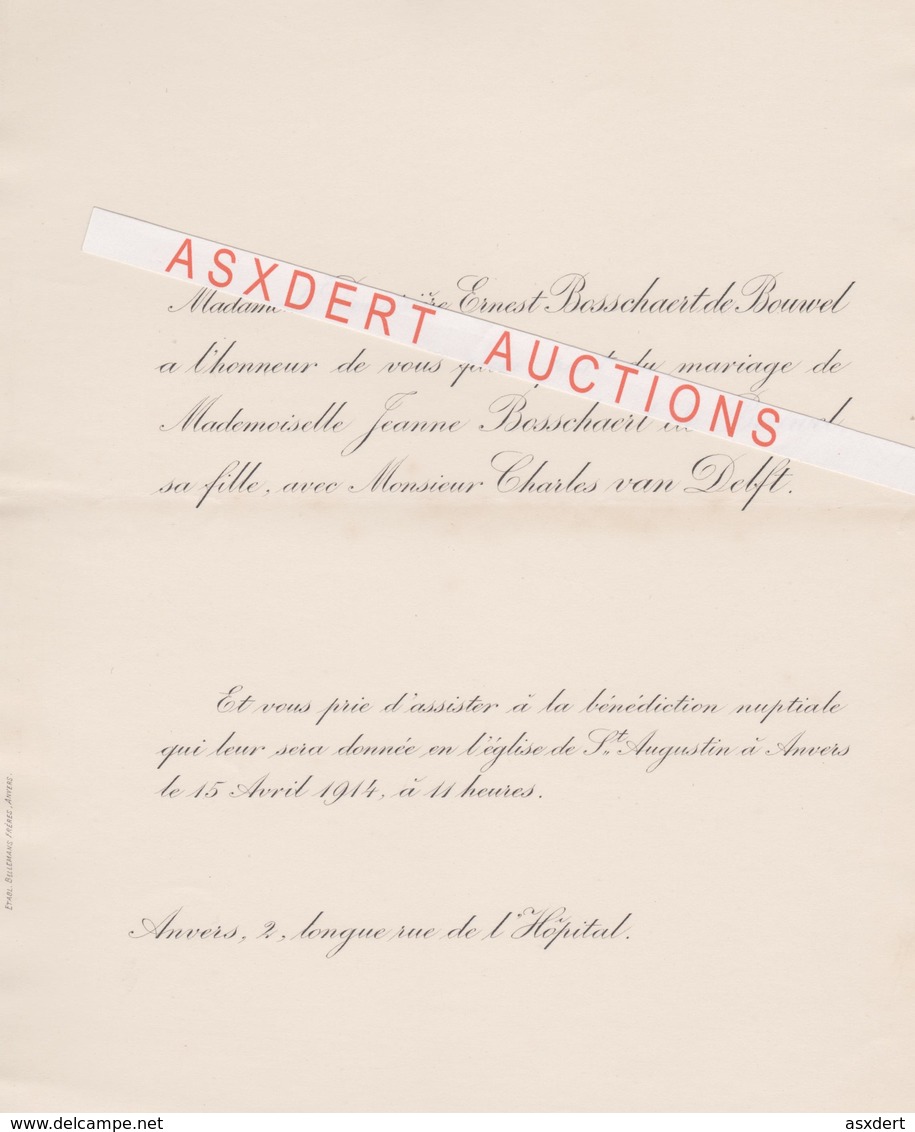 ASXDERT AUCTIONS
Ernest Bosschaert de Bouwel
a l'honneur de vous du mariage de
Mademoiselle Jeanne Bosschaert
sa fille, avec Monsieur Charles van Delft.
Et vous prie d'assister à la bénédiction nuptiale
qui leur sera donnée en l'église de St. Augustin à Anvers
le 15 Avril 1914, à 11 heures.
Anvers, 2, longue rue de l'Hôpital.
ETABL. BELLEMANS FRÈRES, ANVERS.
www.delcampe.net
asxdert